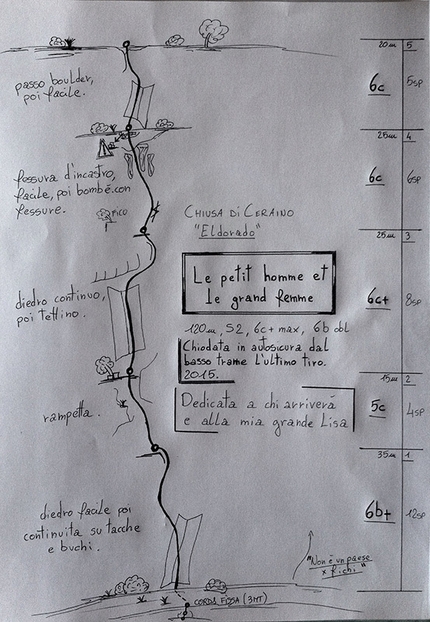 20m 5
passo boulder,
poi facile.
6c 5sp
25m 4
fessura d'incastro,
facile, poi bombé con
fessure.
6c 6sp
FICO
CHIUSA DI CERAINO
"Eldorado"
25m 3
Le petit homme et
le grand femme
diedro continuo,
poi tettino.
6c+ 8sp
120m, S2, 6c+ max, 6b obl
Chiodata in autosicura dal
basso trame l'ultimo tiro.
2015.
15m 2
Dedicata a chi arriverá
e alla mia grande Lisa
rampetta.
5c 4sp
35m 1
diedro facile poi
continuita su tacche
e buchi.
6b+ 12sp
"Non é un paese
x Richi"
CORDA FISSA (3MT)